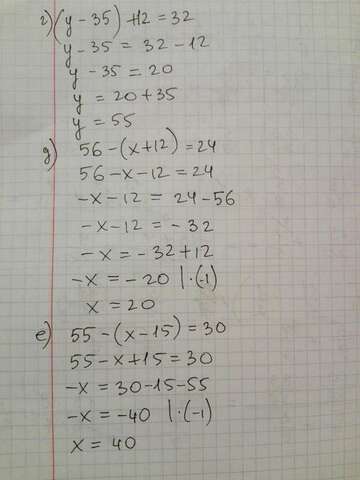 г) (y - 35) + 12 = 32
y - 35 = 32 - 12
y - 35 = 20
y = 20 + 35
y = 55
g) 56 - (x + 12) = 24
56 - x - 12 = 24
-x - 12 = 24 - 56
-x - 12 = -32
-x = -32 + 12
-x = -20 | · (-1)
x = 20
e) 55 - (x - 15) = 30
55 - x + 15 = 30
-x = 30 - 15 - 55
-x = -40 | · (-1)
x = 40